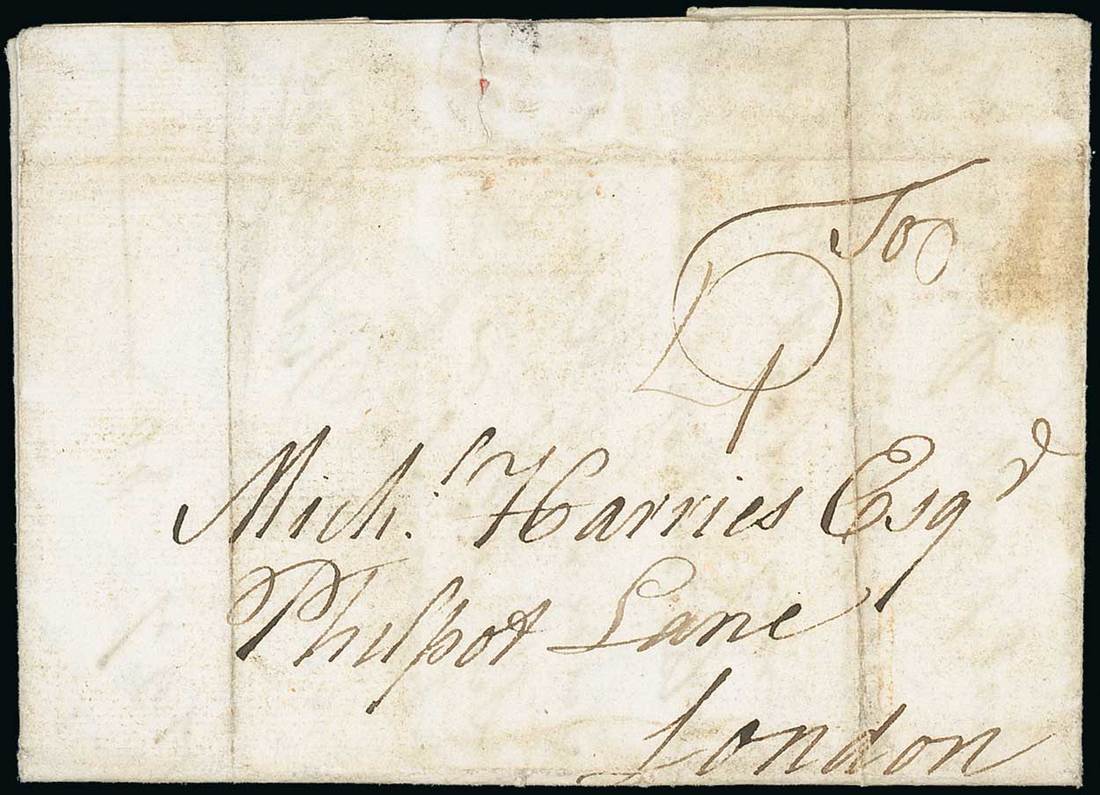 To
Mich.l Harries Esqr
Philpot Lane
London